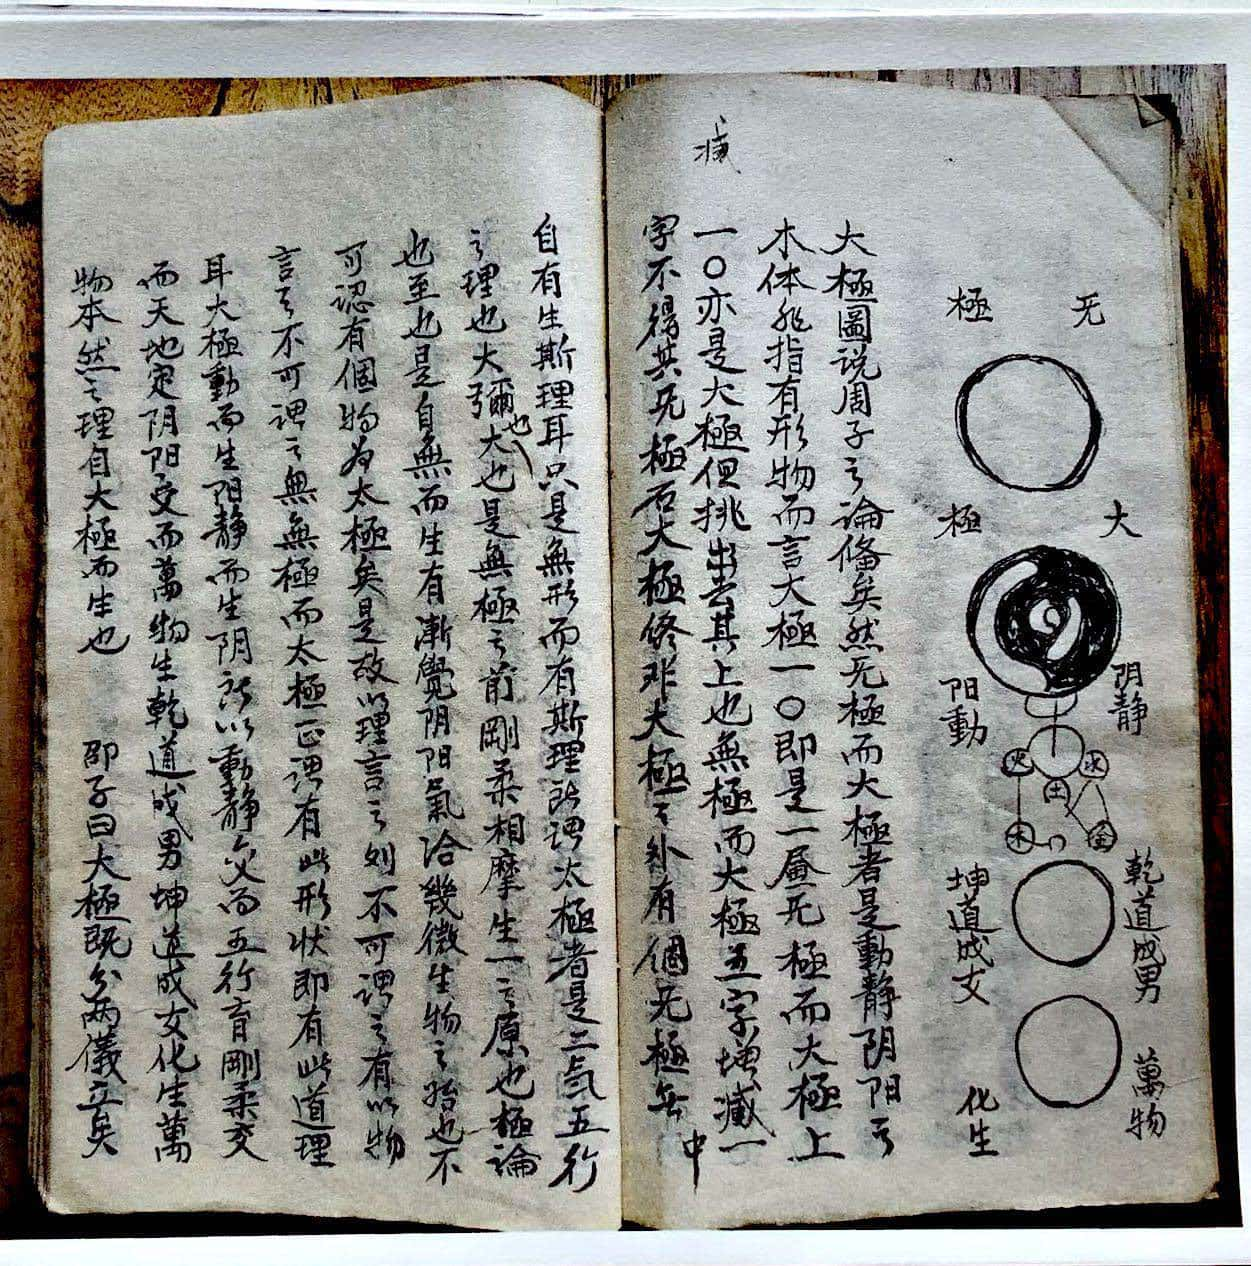 无極
大極
阴静
阳動
火水
土
木金
乾道成男
坤道成女
萬物
化生
大極圖说周子之論俻矣然无極而大極者是動静阴阳之
本体非指有形物而言大極一〇即是一屆无極而大極上
减
一〇亦是大極但挑出去其上也無極而大極五字增减一
字不得其无極右大極俢非大極之外有個无極無中
自有生斯理耳只是無形而有斯理所謂太極者是二気五行
之理也大彌大也是無極之前剛柔相摩生一之原也極論
也
也至也是自無而生有漸覺阴阳氣洽幾微生物之殆也不
可認有個物為太極矣是故以理言之则不可謂之有以物
言之不可謂之無無極而太極正谓有此形状即有此道理
耳大極動而生阳静而生阴所以動静交而五行育剛柔交
而天地定阴阳交而萬物生乾道成男坤道成女化生萬
物本然之理自大極而生也 邵子曰大極既分两儀立矣